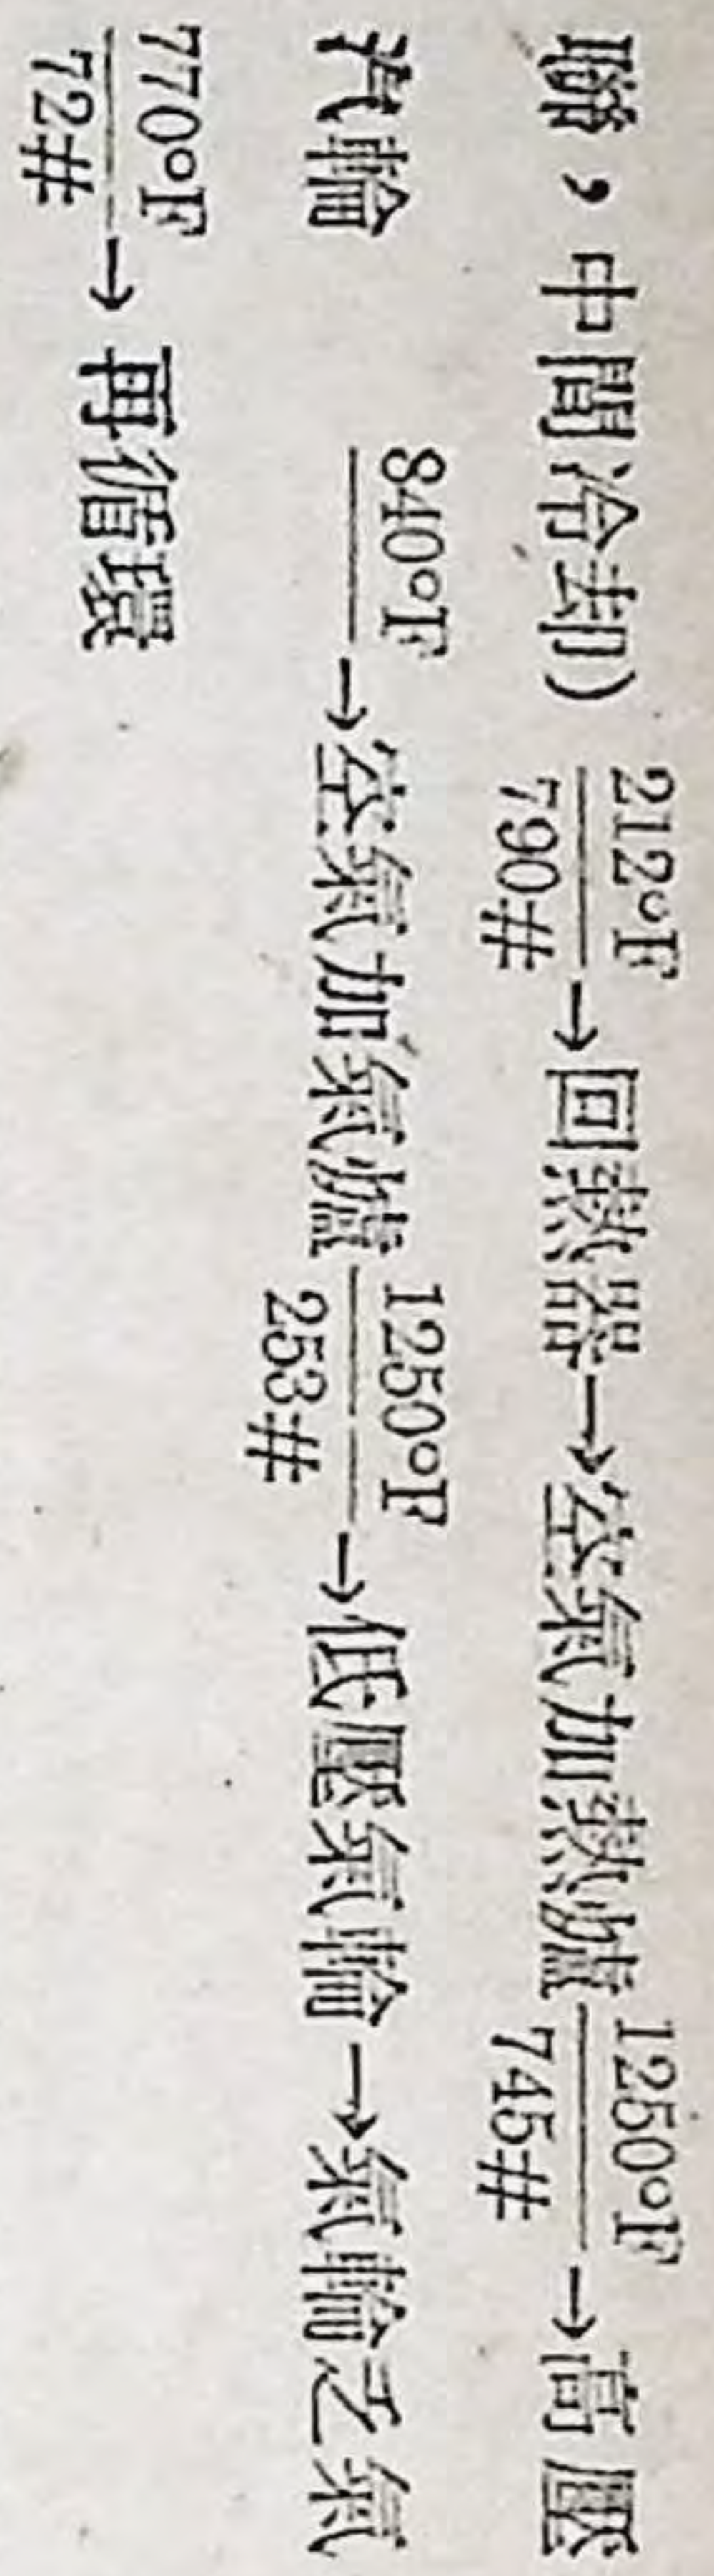 聯，中間冷却） 212°F/790# →回熱器→空氣加熱爐 1250°F/745# →高壓
汽輪 840°F →空氣加氣爐 1250°F/253# →低壓氣輪→氣輪乏氣
770°F/72# →再循環